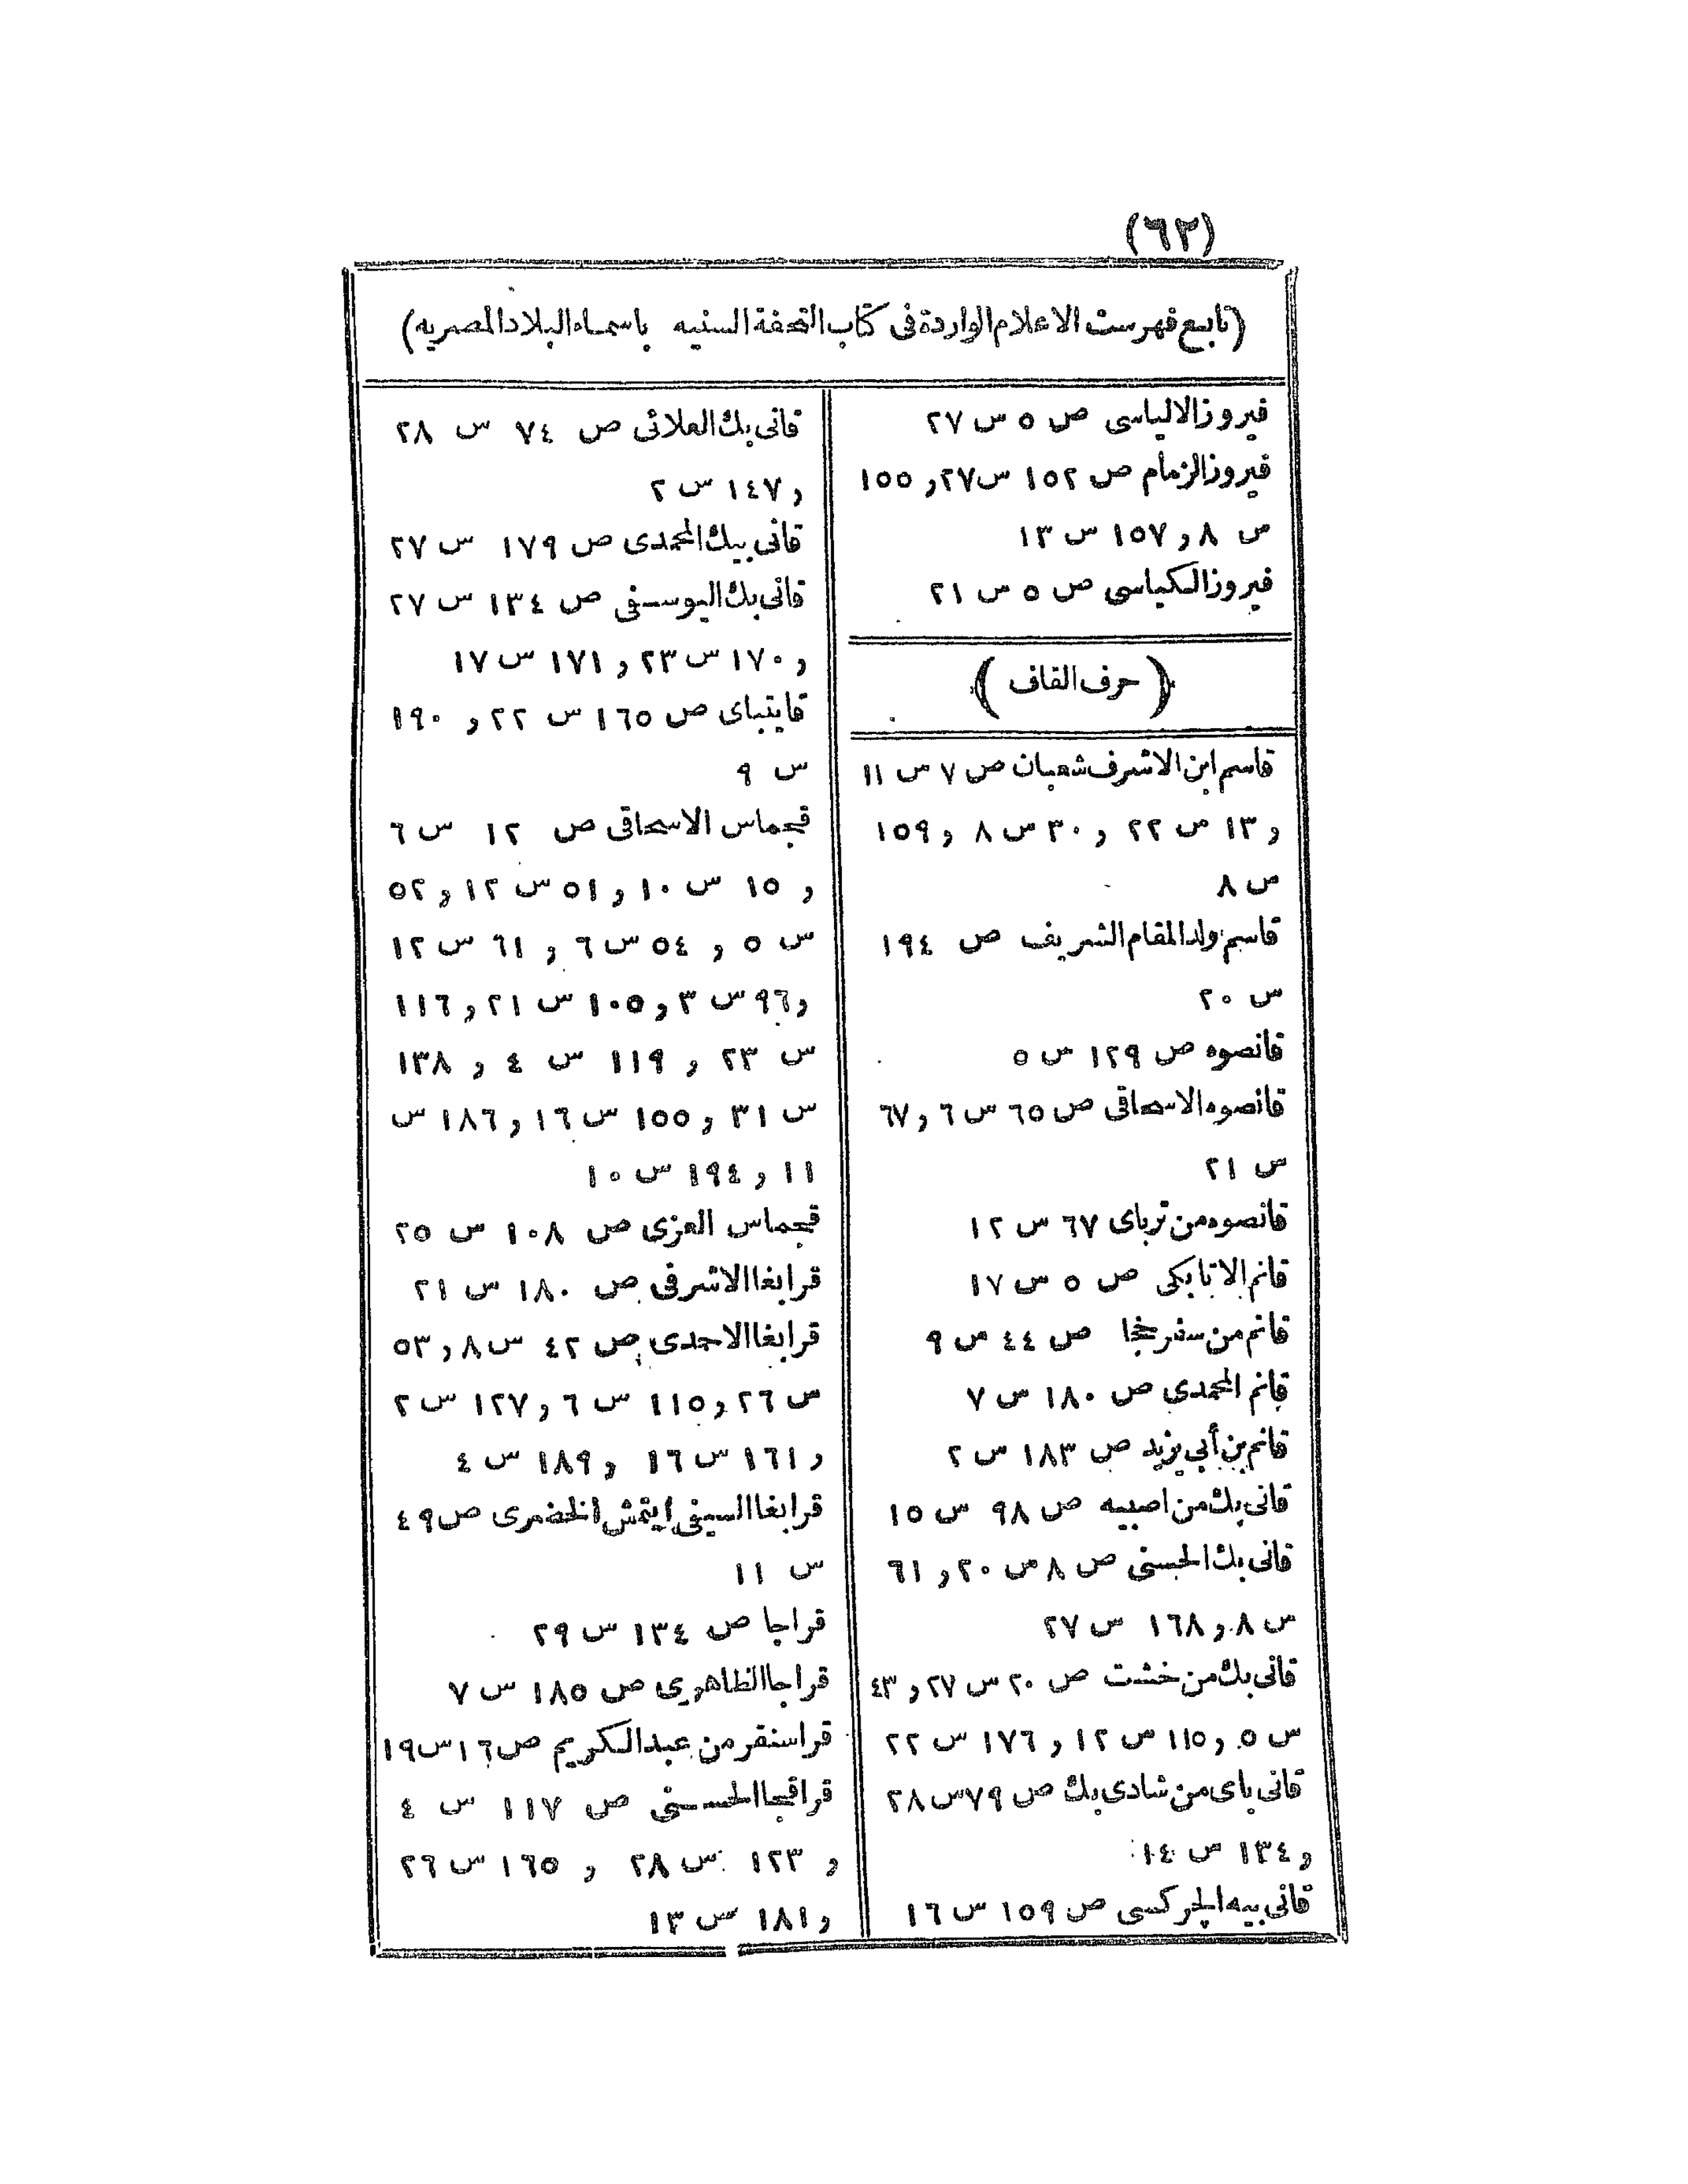 (٦٢)
(تابع فهرست الاعلام الواردة فى كتاب التحفة السنيه باسماء البلاد المصريه)
فيروز الالياسى ص ٥ س ٢٧
فيروز الزمام ص ١٥٢ س ٢٧ و ١٥٥
س ٨ و ١٥٧ س ١٣
فيروز الكياسى ص ٥ س ٢١
(حرف القاف)
قاسم ابن الاشرف شعبان ص ٧ س ١١
و ١٣ س ٢٢ و ٣٠ س ٨ و ١٥٩
س ٨
قاسم ولد المقام الشريف ص ١٩٤
س ٢٠
قانصوه ص ١٢٩ س ٥
قانصوه الاسحاقى ص ٦٥ س ٦ و ٦٧
س ٢١
قانصوه من ترباى ٦٧ س ١٢
قانم الاتابكى ص ٥ س ١٧
قانم من سفر خجا ص ٤٤ س ٩
قانم المحمدى ص ١٨٠ س ٧
قانم بن أبي يزيد ص ١٨٣ س ٢
قانى بك من اصبيه ص ٩٨ س ١٥
قانى بك الحسنى ص ٨ س ٢٠ و ٦١
س ٨ و ١٦٨ س ٢٧
قانى بك من خشت ص ٢٠ س ٢٧ و ٤٣
س ٥ و ١١٥ س ١٢ و ١٧٦ س ٢٢
قانى باى من شادى بك ص ٧٩ س ٢٨
و ١٣٤ س ١٤
قانى بيه الچركسى ص ١٥٩ س ١٦
قانى بك العلائى ص ٧٤ س ٢٨
و ١٤٧ س ٢
قانى بيك المحمدى ص ١٧٩ س ٢٧
قانى بك اليوسفى ص ١٣٤ س ٢٧
و ١٧٠ س ٢٣ و ١٧١ س ١٧
قايتباى ص ١٦٥ س ٢٢ و ١٩٠
س ٩
قجماس الاسحاقى ص ١٢ س ٦
و ١٥ س ١٠ و ٥١ س ١٢ و ٥٢
س ٥ و ٥٤ س ٦ و ٦١ س ١٢
و ٩٦ س ٣ و ١٠٥ س ٢١ و ١١٦
س ٢٣ و ١١٩ س ٤ و ١٣٨
س ٣١ و ١٥٥ س ١٦ و ١٨٦ س
١١ و ١٩٤ س ١٠
قجماس العزى ص ١٠٨ س ٢٥
قرابغا الاشرفى ص ١٨٠ س ٢١
قرابغا الاحدى ص ٤٢ س ٨ و ٥٣
س ٢٦ و ١١٥ س ٦ و ١٢٧ س ٢
و ١٦١ س ١٦ و ١٨٩ س ٤
قرابغا السيفى ايتمش الخضرى ص ٤٩
س ١١
قراجا ص ١٣٤ س ٢٩
قراجا الظاهرى ص ١٨٥ س ٧
قراسنقر من عبد الكريم ص ١٦ س ١٩
قراقجا الحسنى ص ١١٧ س ٤
و ١٢٣ س ٢٨ و ١٦٥ س ٢٦
و ١٨١ س ١٣